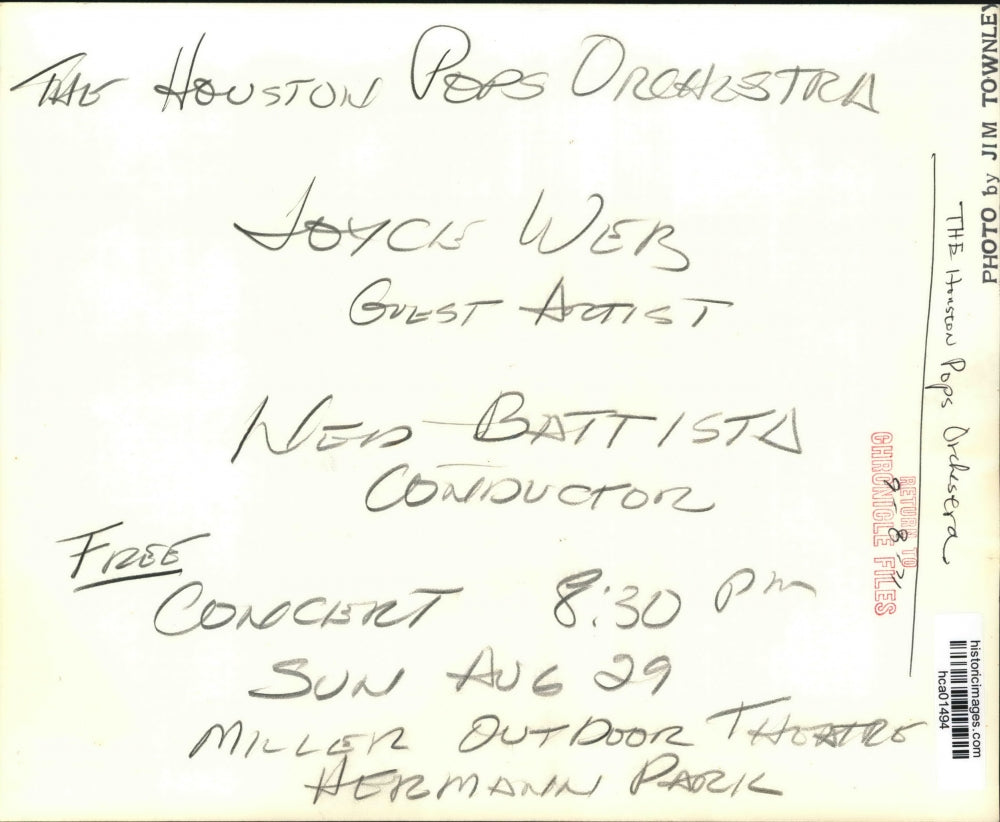 THE HOUSTON POPS ORCHESTRA
JOYCE WEB
GUEST ARTIST
NED BATTISTA
CONDUCTOR
FREE
CONCERT 8:30 PM
SUN AUG 29
MILLER OUTDOOR THEATRE
HERMANN PARK
PHOTO by JIM TOWNLEY
THE Houston Pops Orchestera
RETURN TO
CHRONICLE FILES
historicimages.com
hca01494